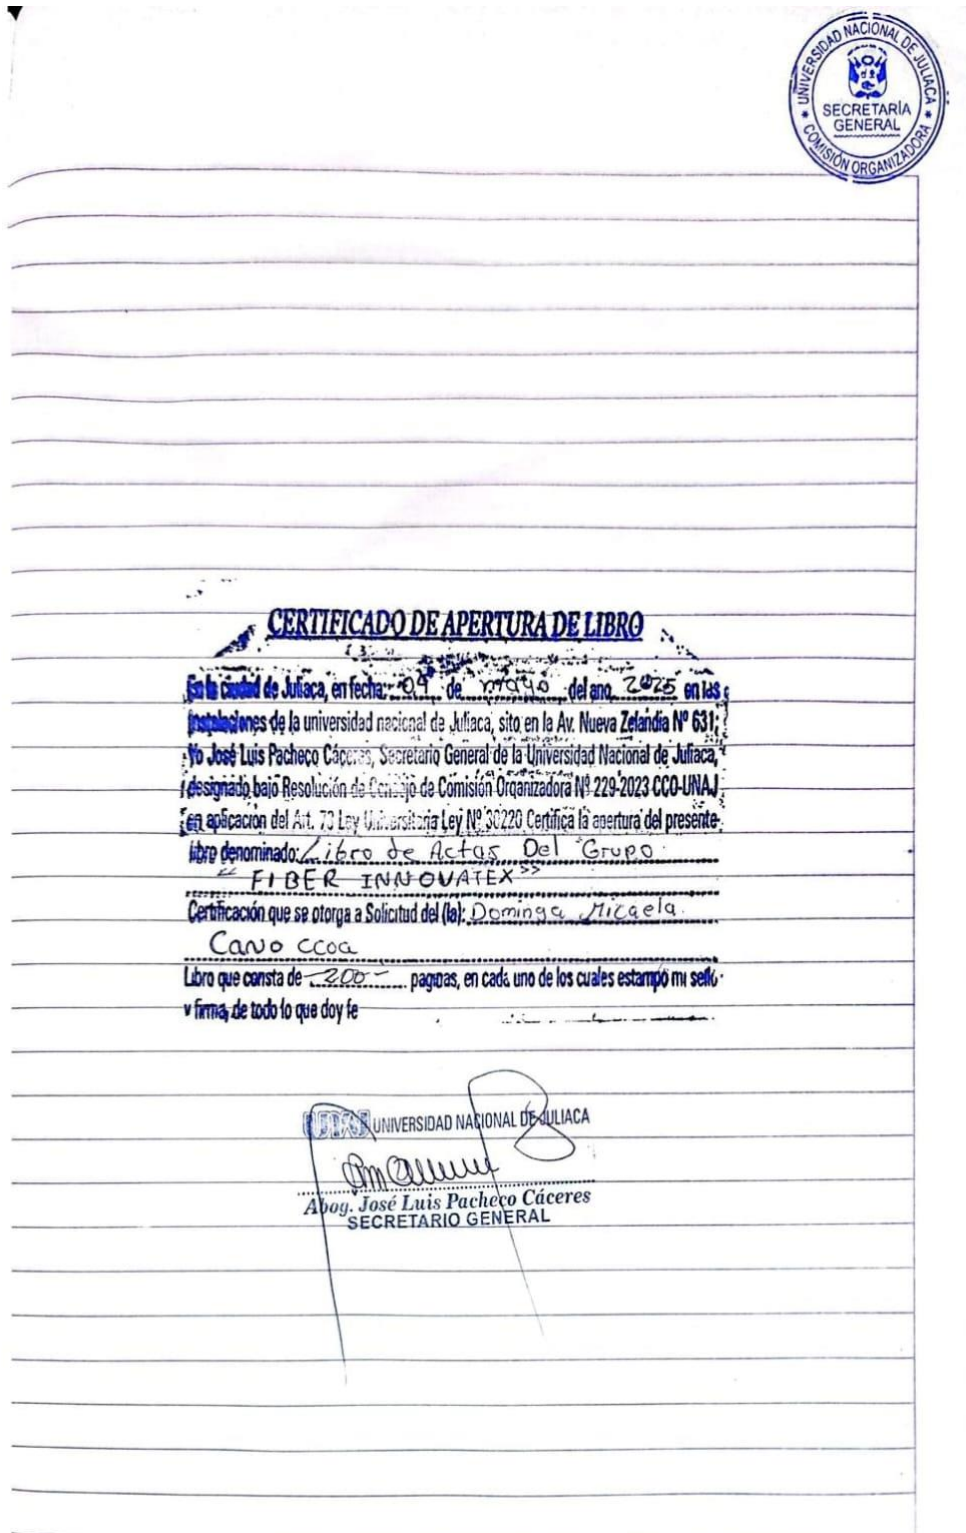 UNIVERSIDAD NACIONAL DE JULIACA
SECRETARÍA
GENERAL
COMISIÓN ORGANIZADORA
CERTIFICADO DE APERTURA DE LIBRO
En la Ciudad de Juliaca, en fecha: 09 de mayo del ano 2025 en las
instalaciones de la universidad nacional de Juliaca, sito en la Av. Nueva Zelandia Nº 631;
Yo José Luis Pacheco Cáceres, Secretario General de la Universidad Nacional de Juliaca,
designado bajo Resolución de Consejo de Comisión Organizadora Nº 229-2023 CCO-UNAJ
en aplicación del Art. 73 Ley Universitaria Ley Nº 30220 Certifica la apertura del presente
libro denominado: Libro de Actas Del Grupo
"FIBER INNOVATEX"
Certificación que se otorga a Solicitud del (la): Dominga Micaela
Cano ccoa
Libro que consta de -200- paginas, en cada uno de los cuales estampo mi sello
y firma, de todo lo que doy fe
UNIVERSIDAD NACIONAL DE JULIACA
Abog. José Luis Pacheco Cáceres
SECRETARIO GENERAL